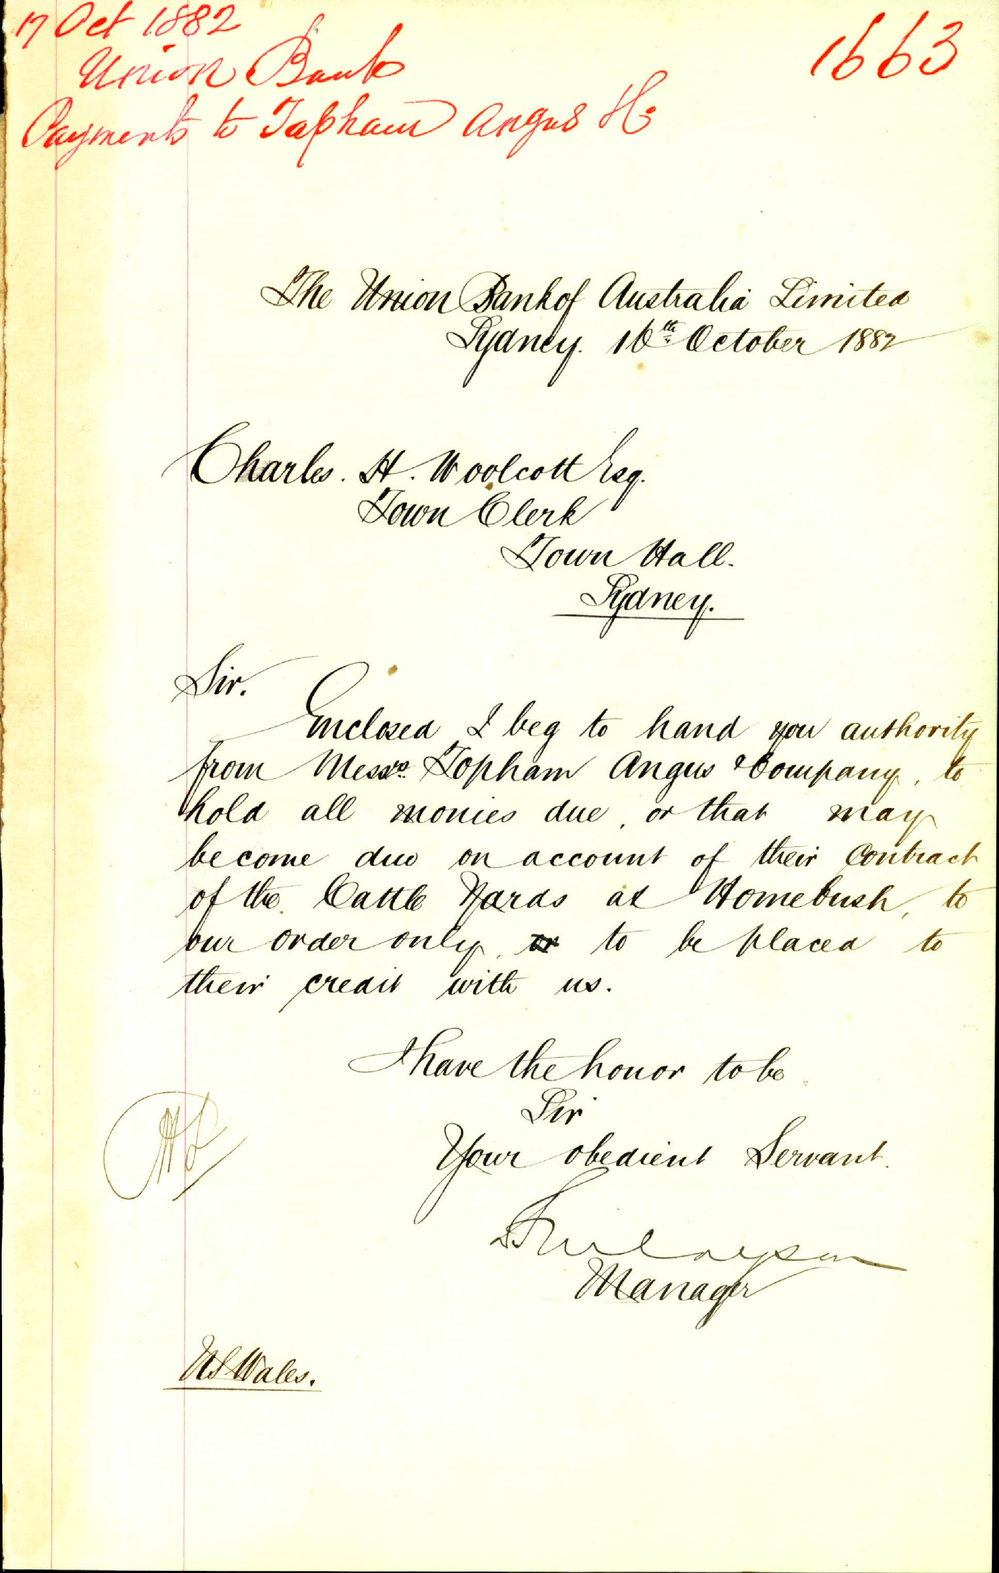 17 Oct 1882
1663
Union Bank
Payments to Tapham Angus & Co
The Union Bank of Australia Limited
Sydney. 16th October 1882
Charles. H. Woolcott Esq.
Town Clerk
Town Hall.
Sydney.
Sir.
Enclosed I beg to hand you authority
from Messrs. Topham Angus & Company, to
hold all monies due, or that may
become due on account of their Contract
of the Cattle Yards at Homebush, to
our order only, or to be placed to
their credit with us.
I have the honor to be
Sir
Your obedient Servant.
Manager
NS Wales.